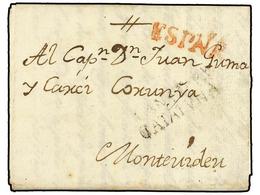 ESPAÑ
Al Capn. Dn. Juan Puma
y Carci Corunya
CATALUÑA
Montevideu